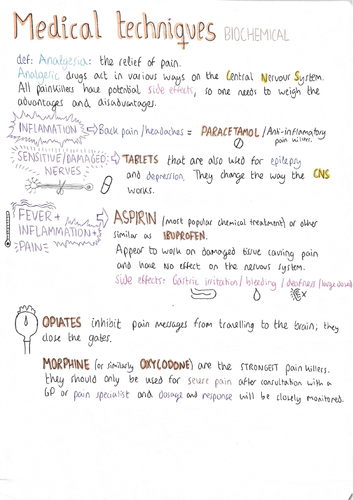 Medical techniques BIOCHEMICAL
def: Analgesia: the relief of pain.
Analgesic drugs act in various ways on the Central Nervous System.
All painkillers have potential side effects, so one needs to weigh the
advantages and disadvantages.
INFLAMATION Back pain/headaches = PARACETAMOL / Anti-inflammatory
pain killers.
SENSITIVE/DAMAGED TABLETS that are also used for epilepsy
NERVES and depression. They change the way the CNS
works.
FEVER + ASPIRIN (most popular chemical treatment) or other
INFLAMMATION + similar as IBUPROFEN.
PAIN Appear to work on damaged tissue causing pain
and have no effect on the nervous system.
Side effects: Gastric irritation / bleeding / deafness / large doses
OPIATES inhibit pain messages from travelling to the brain; they
close the gates.
MORPHINE (or similarly OXYCODONE) are the STRONGEST pain killers.
they should only be used for severe pain after consultation with a
GP or pain specialist and dosage and response will be closely monitored.